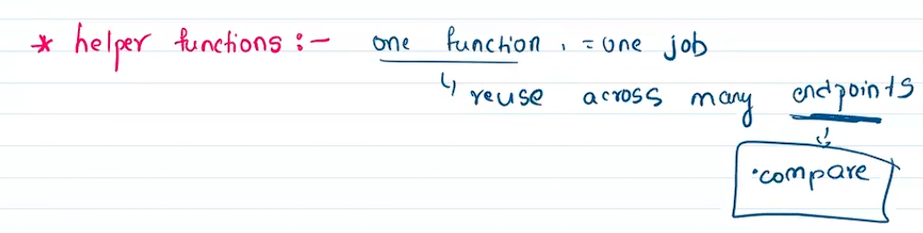 * helper functions :- one function, = one job
↳ reuse across many endpoints
↓
•compare